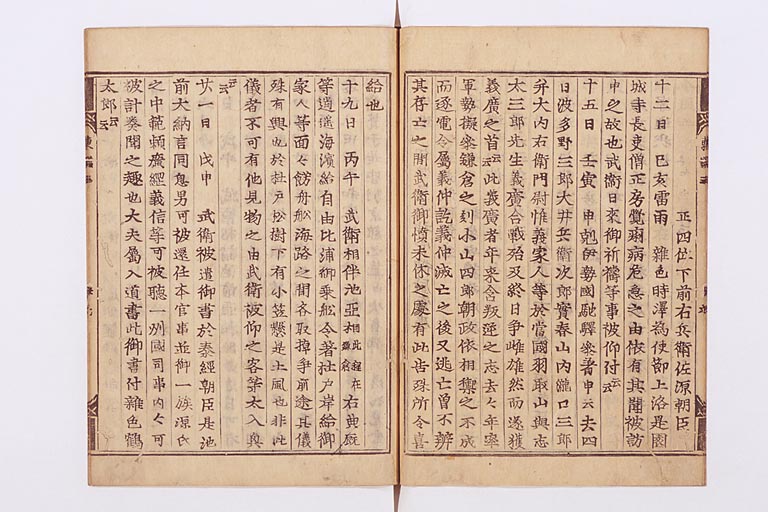 正四位下前右兵衛佐源朝臣
十二日 己亥雷雨 雜色時澤爲使節上洛是園
城寺長吏僧正房覺痢病危急之由依有其聞被訪
申之故也武衛日來御祈禱等事被仰付云云
十五日 壬寅 申尅伊勢國馳驛參着申云去四
日波多野三郎大井兵衛次郎實春山內瀧口三郎
并大內右衛門尉惟義家人等於當國羽取山與志
太三郎先生義廣合戰殆及終日爭雌雄然而遂獲
義廣之首云云此義廣者年來含叛逆之志去々年率
軍勢擬參鎌倉之刻小山四郎朝政依相禦之不成
而逐電令屬義仲訖義仲滅亡之後又逃亡曾不辨
其存亡之間武衛御憤未休之處有此告殊所令喜
給也
十九日 丙午 武衛相伴池亞相此程在鎌倉右典厩
等逍遙海濱給自由比浦御乘船令著杜戶岸給御
家人等面々餝舟舩海路之間各取棹爭前途其儀
殊有興也於杜戶松樹下有小笠懸是士風也非此
儀者不可有他見物之由武衛被仰之客等太入興
云云
廿一日 戊申 武衛被遣御書於泰經朝臣是池
前大納言同息男可被還任本官事並御一族源氏
之中範頼廣經義信等可被聽一州國司事內々可
被計奏聞之趣也大夫屬入道書此御書付雜色鶴
太郎云云